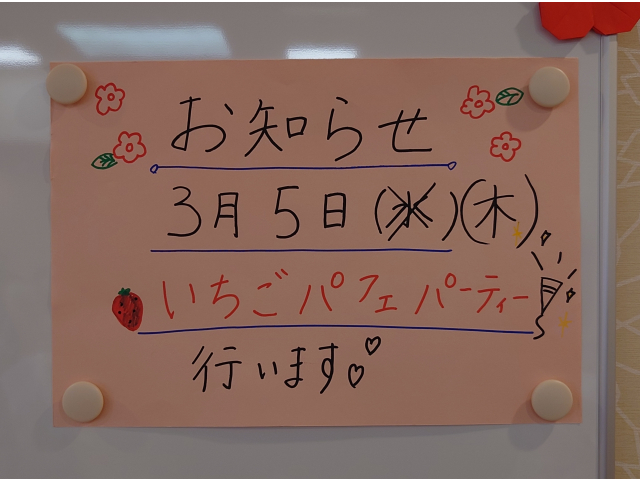 お知らせ
3月5日(水)(木)
いちごパフェパーティー
行います